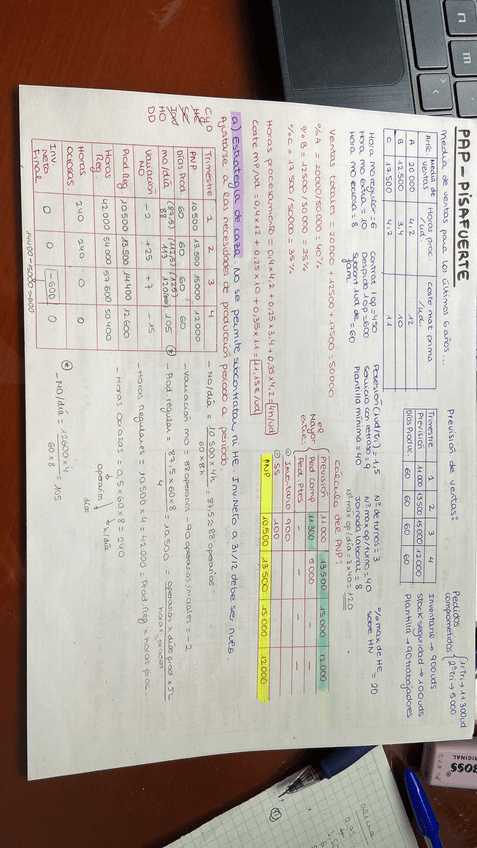 PAP - PISAFUERTE
Media de ventas para los últimos 6 años...
Artic Media de ventas Horas proc. /ud. Coste mat prima /ud.
A 20.000 4,2 12
B 12.500 3,4 10
C 17.500 4,2 11
Previsión de ventas:
Trimestre 1 2 3 4
Previsión 11.000 13.500 15.000 12.000
Días Produc. 60 60 60 60
Pedidos comprometidos
1r Tri → 11.300 ud
2º Tri → 5.000
Inventario → 900 uds
Stock seguridad → 100 uds
Plantilla → 90 trabajadores
Hora mo regular = 6
Hora mo extra = 10
Hora mo ociosa = 8
Contrat 1 op = 450
Despido 1 op = 600
Subcont 1 ud de = 60
Posesión (1 ud/tr) = 1,5
Servicio con retraso = 9
Plantilla mínima = 40
Nº de turnos = 3
Nº max op/turno = 40
Jornada laboral = 8
% max de HE = 20
sobre HN
Nº max op/día = 3 x 40 = 120
Ventas totales = 20.000 + 12500 + 17500 = 50000
% A = 20000/50000 = 40%
% B = 12500/50000 = 25%
% C = 17500/50000 = 35%
Horas procesamiento = 0,4 x 4,2 + 0,25 x 3,4 + 0,35 x 4,2 = 4h/ud
Coste mp/ud = 0,4 x 12 + 0,25 x 10 + 0,35 x 11 = 11,15€/ud
Cálculo del PNP:
el Mayor entre:
Previsión 11.000 13.500 15.000 12.000
Ped comp 11.300 5.000 - -
Ped Pte - - -
Inventario 900
SS 100
PNP 10.500 13.500 15.000 12.000
a) Estrategia de caza No se permite subcontratar, ni HE. Inv. Neto a 31/12 debe ser nulo.
Ajustarse a las necesidades de producción periodo a periodo.
CyD
HE
SC
Inv
HO
DD
Trimestre 1 2 3 4
PNP 10.500 13.500 15.000 12.000
Días Prod 60 60 60 60
mo/día (87,5) 88 (112,5) 113 (125) 120 105
Variación MO -2 +25 +7 -15
Prod Reg 10.500 13.500 14.400 12.600
Horas Reg 42.000 54.000 57.600 50.400
Horas ociosas 240 240 0 0
Inv. Neto Final 0 0 -600 0
14400 - 15000 = -600
- MO/día = 10.500 x 4h / 60 x 8h = 87,5 ≅ 88 operarios
- Variación mo = 88 operarios - 90 operarios iniciales = -2
- Prod regular = 87,5 x 60 x 8 / 4 = 10.500 = operarios x días prod x JL
- Horas regulares = 10.500 x 4 = 42.000 = Prod. Reg x horas proc.
- Horas ociosas = 0,5 x 60 x 8 = 240
operarios
días
h/día
- MO/día = 12600 x 4 / 60 x 8 = 105